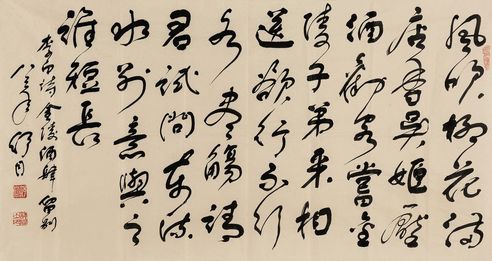 風吹柳花滿
店香吳姬壓
酒勸客嘗金
陵子弟来相
送欲行不行
各盡觴請
君試問東流
水别意與之
誰短長
李白詩金陵酒肆留别